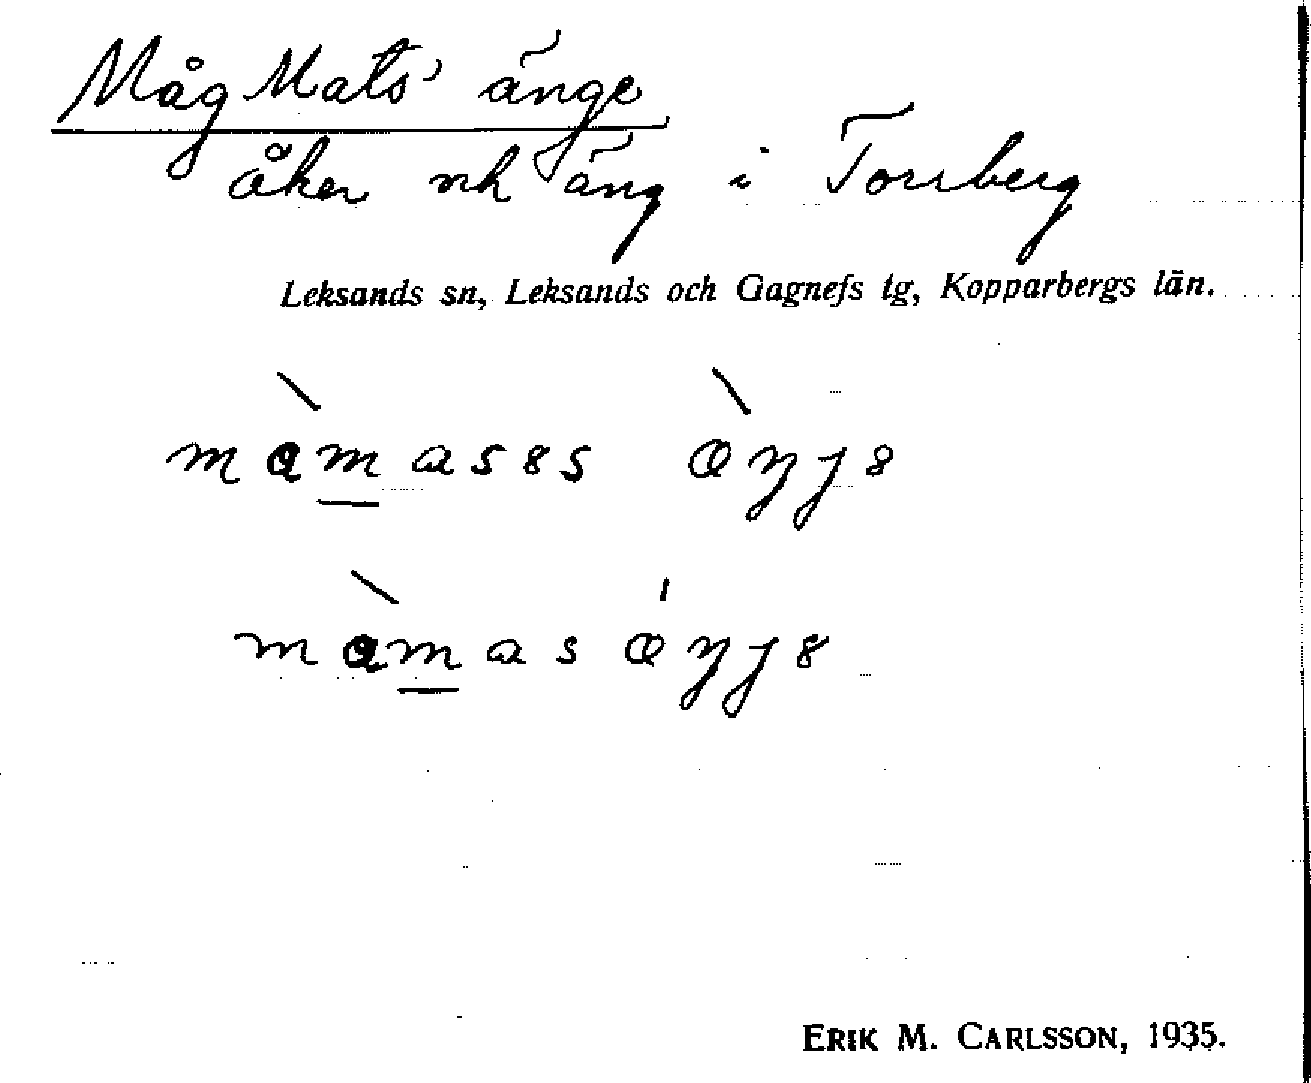 Måg Mats' änge
åker och äng i Torrberg
Leksands sn, Leksands och Gagnefs tg, Kopparbergs län.
ERIK M. CARLSSON, 1935.